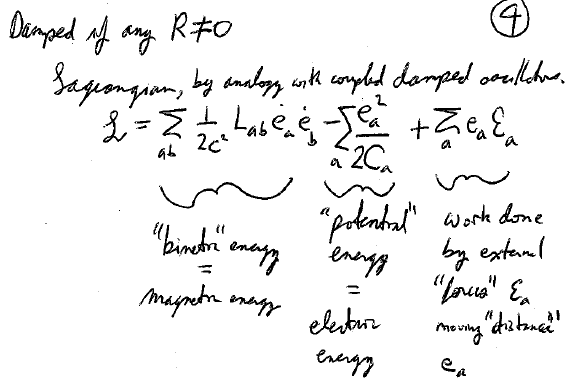 ④
Damped if any R ≠ 0
Lagrangian, by analogy with coupled damped oscillators.
ℒ = Σ_{ab} 1/(2c²) L_{ab} ė_a ė_b − Σ_a e_a²/(2C_a) + Σ_a e_a ℰ_a
"kinetic" energy = magnetic energy
"potential" energy = electric energy
work done by external "forces" ℰ_a moving "distance" e_a